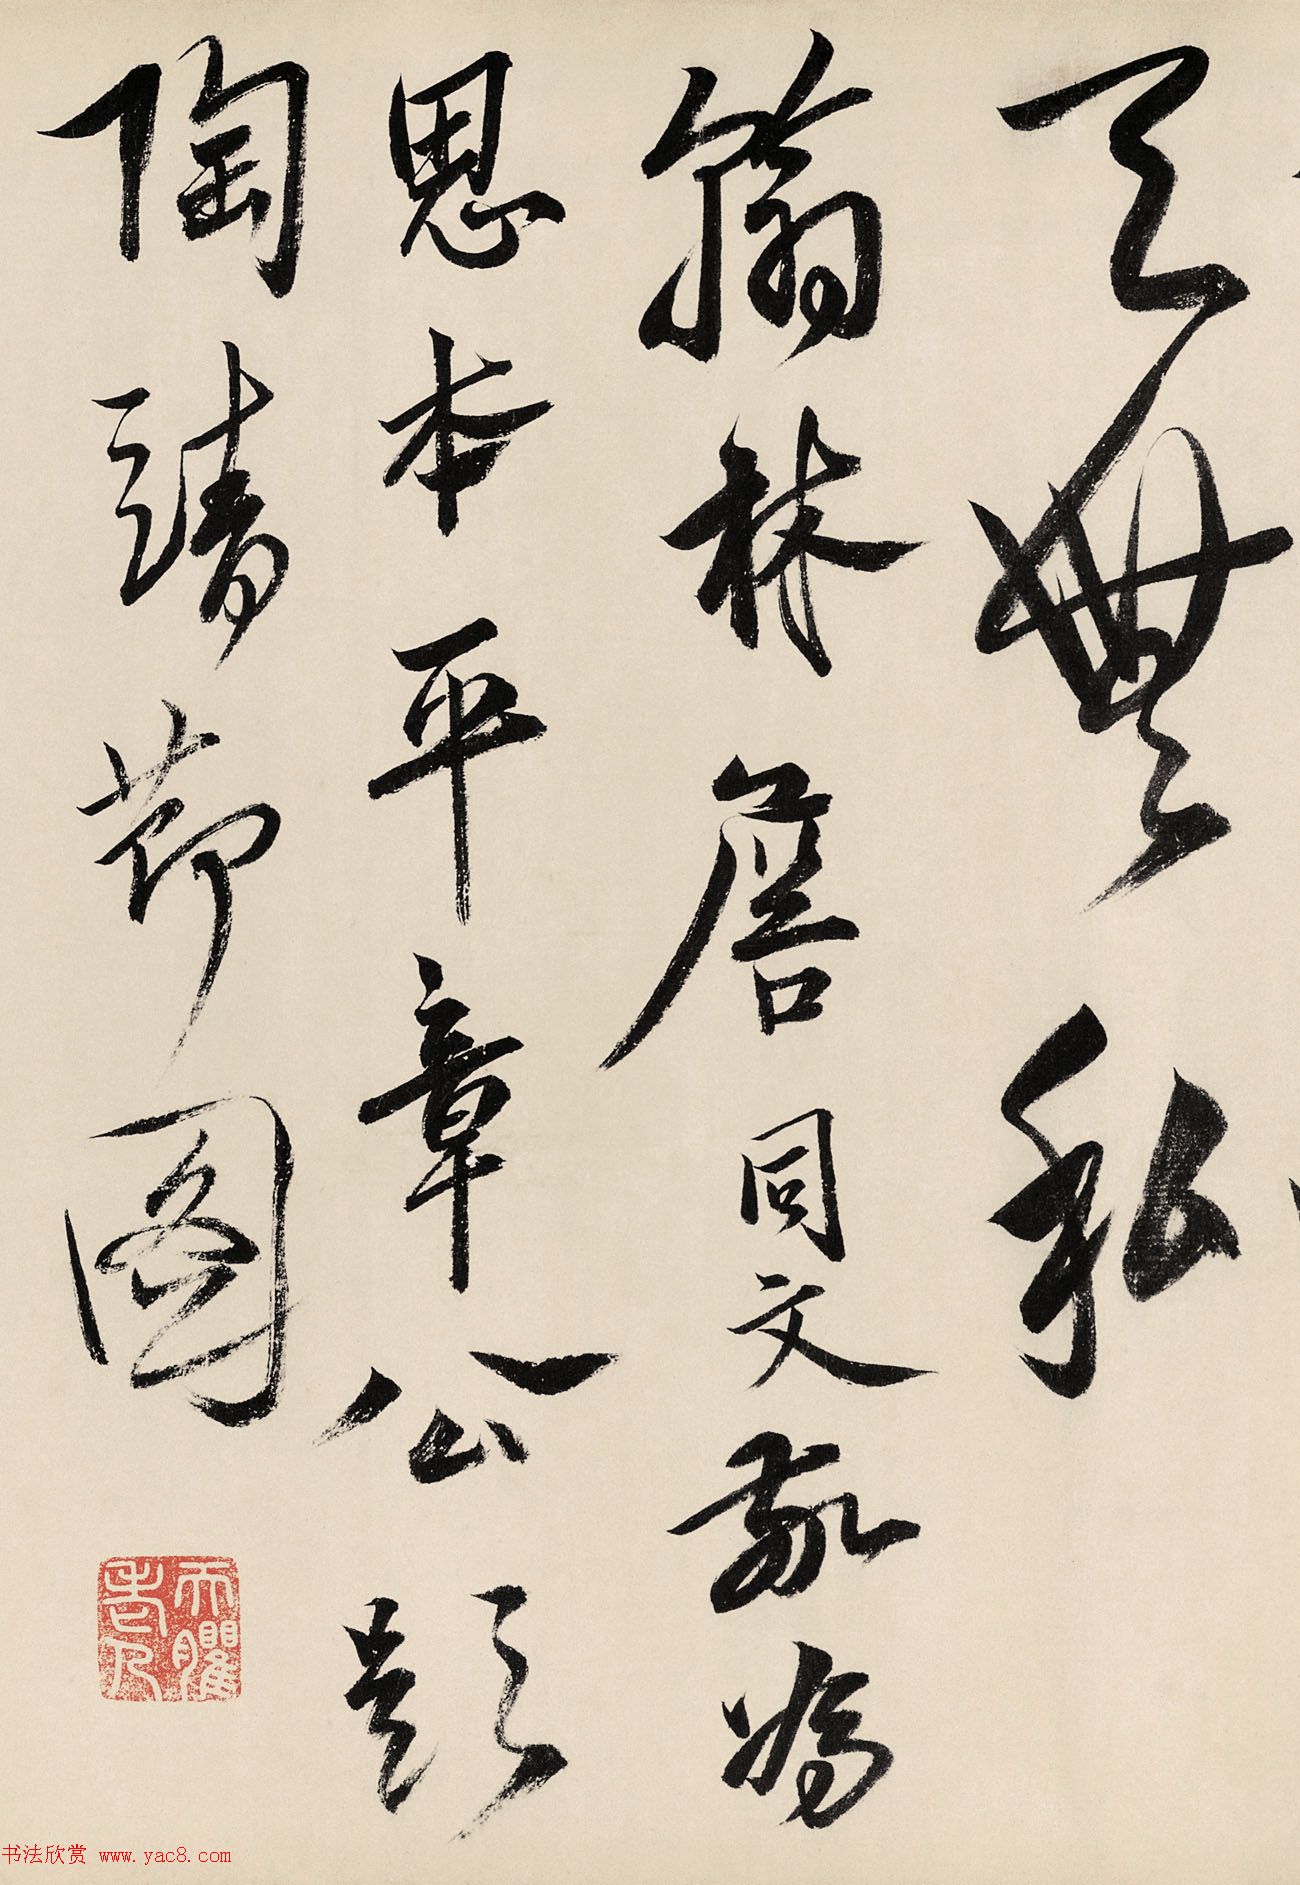 天無私
翰林詹同文敬為
思本平章公題
陶靖節圖
天臞老人
书法欣赏 www.yac8.com